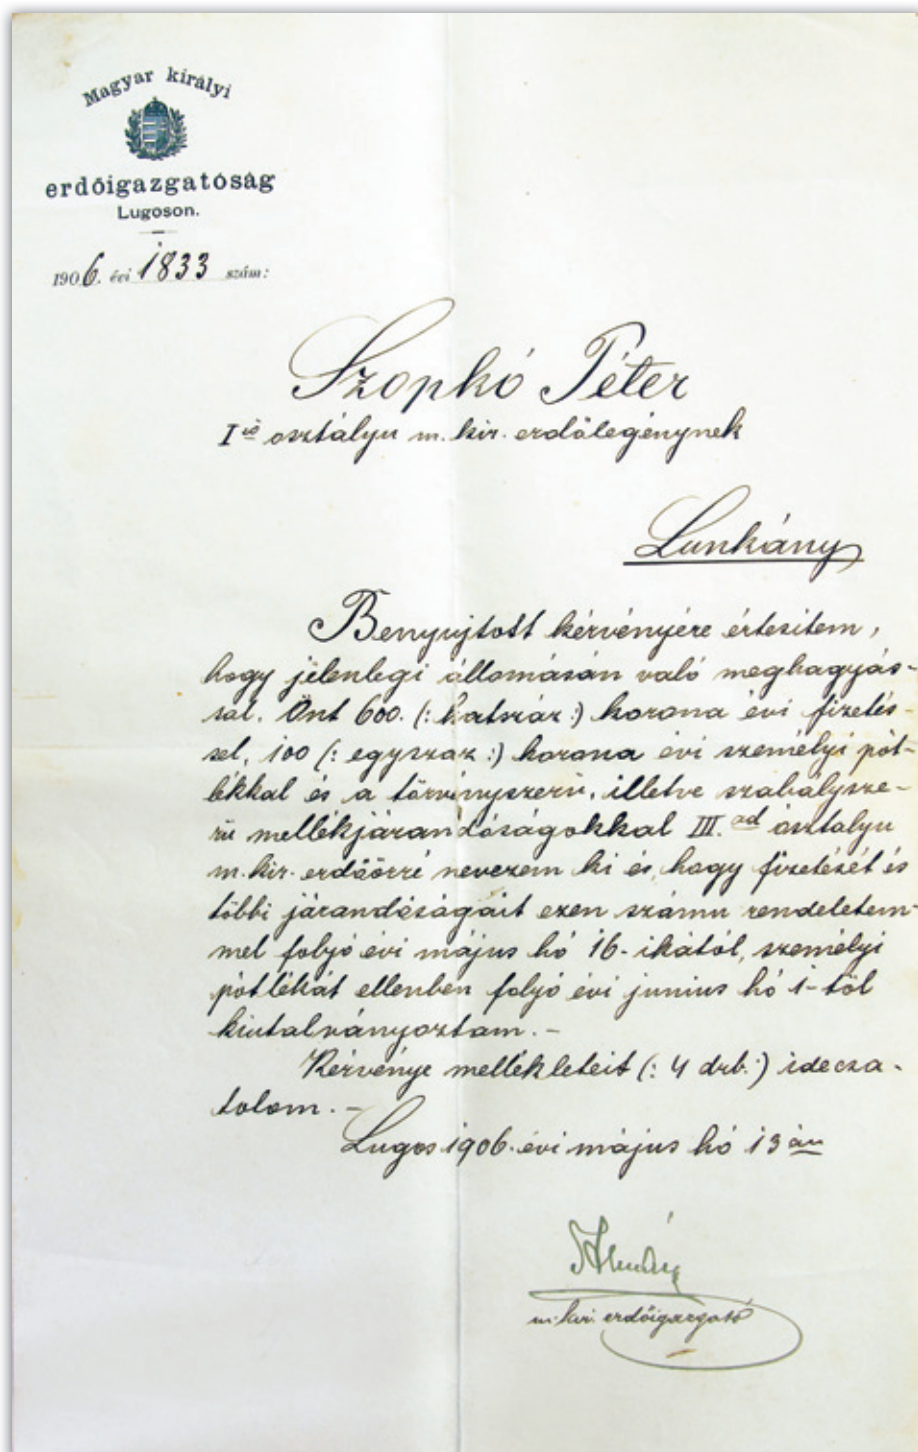 Magyar királyi
erdőigazgatóság
Lugoson.
1906. évi 1833 szám:
Szopkó Péter
I ső osztályu m. kir. erdőlegénynek
Lunkány
Benyujtott kérvényére értesitem,
hogy jelenlegi állomásán való meghagyás-
sal. Önt 600. (: hatszáz :) korona évi fizetés-
sel, 100 (: egyszáz :) korona évi személyi pót-
lékkal és a törvényszerü, illetve szabálysze-
rü mellékjárandóságokkal III. ad osztalyu
m. kir. erdőőrré nevezem ki és, hogy fizetését és
többi járandóságait ezen számu rendeletem-
mel folyó évi május hó 16-ikától, személyi
pótlékát ellenben folyó évi junius hó 1-töl
kiutalványoztam. -
Kérvénye mellékleteit (: 4 drb. :) idecsa-
tolom. -
Lugos 1906. évi május hó 13 án
m. kir. erdőigazgató